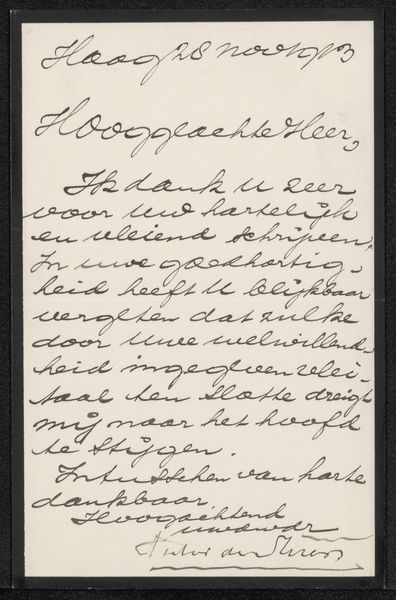 Haag 28 nov 1913
Hooggeachte Heer,
Ik dank U zeer
voor uw hartelijk
en vleiend schrijven.
In uwe goedhartig-
heid heeft U blijkbaar
vergeten dat zulke
door Uwe welwillend-
heid ingegeven vlei-
taal ten slotte dreigt
mij naar het hoofd
te stijgen.
Intusschen van harte
dankbaar
Hoogachtend
uwdwdr